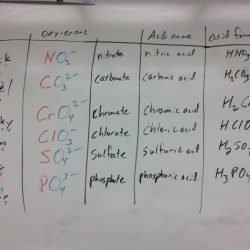 oxy-anions Acid name acid form
NO₃⁻ nitrate nitric acid HNO₃
CO₃²⁻ carbonate carbonic acid H₂CO₃
CrO₄²⁻ chromate chromic acid H₂C
ClO₃⁻ chlorate chloric acid HClO
SO₄²⁻ sulfate sulfuric acid H₂SO
PO₄³⁻ phosphate phosphoric acid H₃PO₄